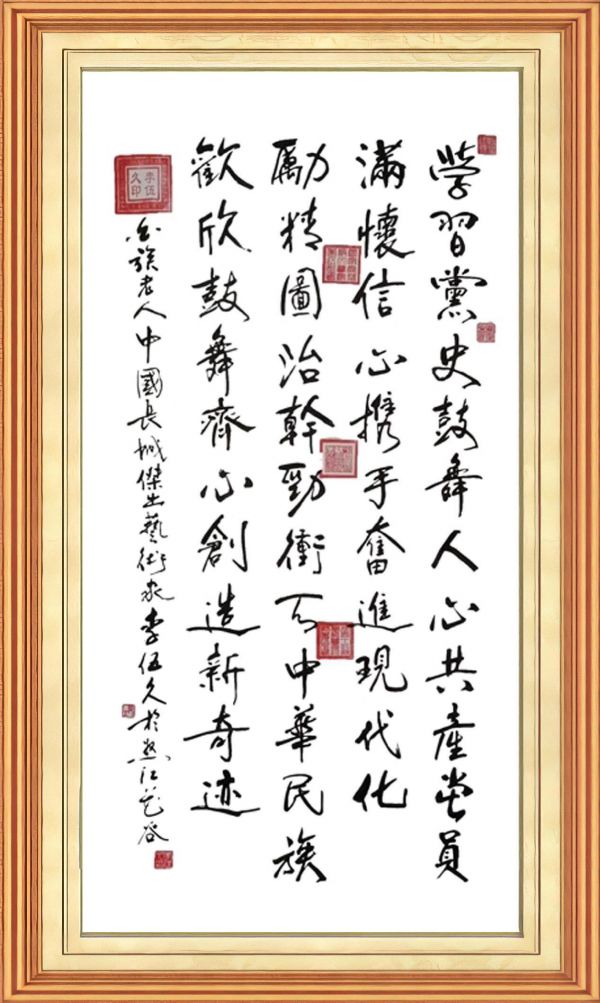 學習黨史鼓舞人心共產党員
滿懷信心携手奮進現代化
勵精圖治幹勁衝天中華民族
歡欣鼓舞齊心創造新奇迹
白族老人中國長城傑出藝術家李伍久於怒江花谷
李伍久印